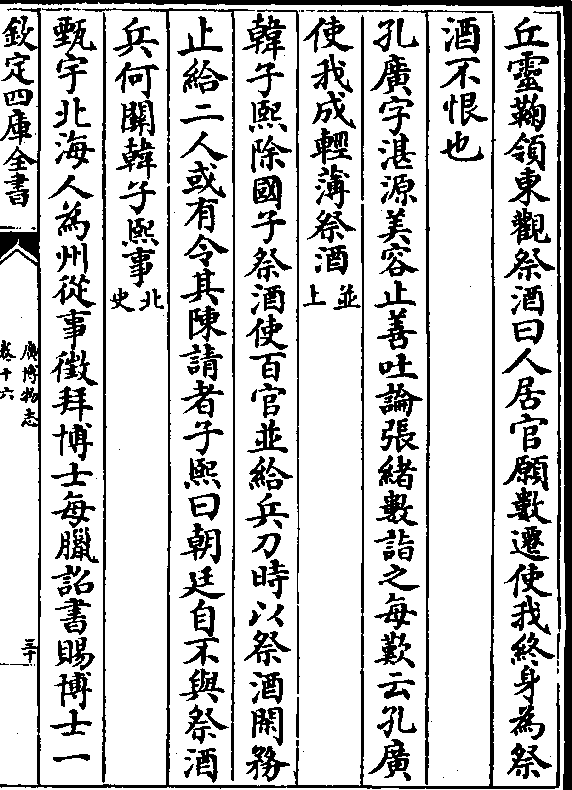 丘靈鞠領東觀祭酒曰人居官願數遷使我終身為祭
酒不恨也
孔廣字湛源美容止善吐論張緒數詣之每歎云孔廣
使我成輕薄祭酒並上
韓子熙除國子祭酒使百官並給兵刀時以祭酒閑務
止給二人或有令其陳請者子熙曰朝廷自不與祭酒
兵何關韓子熙事北史
甄宇北海人為州從事徵拜博士每臘詔書賜博士一
欽定四庫全書
廣博物志
卷十六
三十